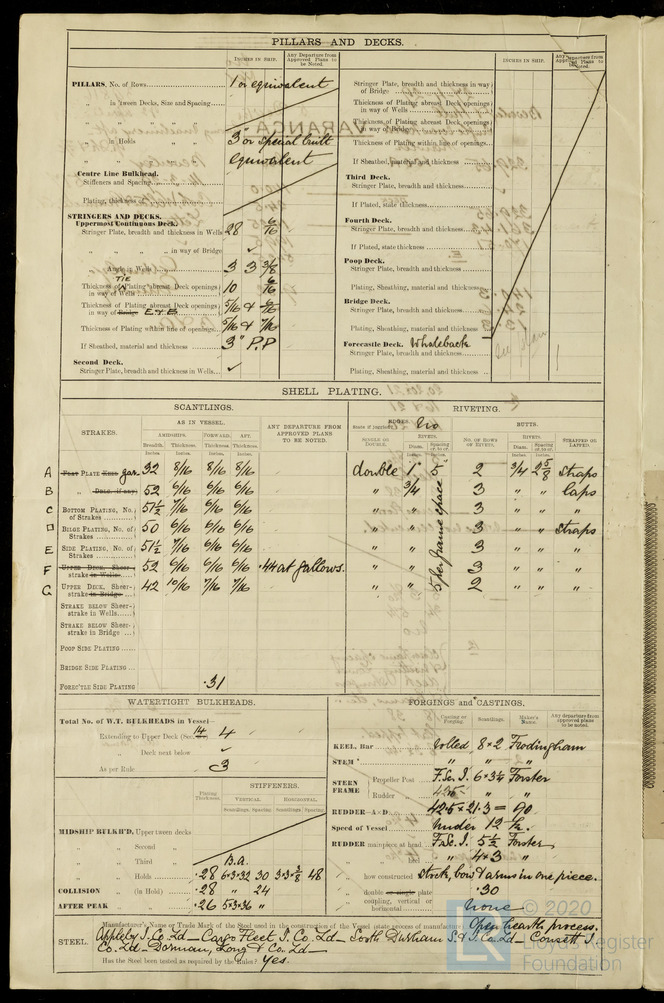 PILLARS AND DECKS.
INCHES IN SHIP.
Any Departure from Approved Plans to be Noted.
PILLARS, No. of Rows 1 or equivalent
" in 'tween Decks, Size and Spacing
" " "
" in Holds " 3" or special built
" " equivalent
Centre Line Bulkhead.
Stiffeners and Spacing
Plating, thickness of
STRINGERS AND DECKS.
Uppermost Continuous Deck.
Stringer Plate, breadth and thickness in Wells 28 6/16
" " " in way of Bridge ✓
Angle in Wells 3 3 3/8
Thickness of Tie Plating abreast Deck openings in way of Wells 10 6/16
Thickness of Plating abreast Deck openings in way of Bridge E & B 5/16 &
Thickness of Plating within line of openings 5/16 & 7/16
If Sheathed, material and thickness 3" P.P
Second Deck.
Stringer Plate, breadth and thickness in Wells ✓
INCHES IN SHIP.
Stringer Plate, breadth and thickness in way of Bridge
Thickness of Plating abreast Deck openings in way of Wells
Thickness of Plating abreast Deck openings in way of Bridge
Thickness of Plating within line of openings
If Sheathed, material and thickness
Third Deck.
Stringer Plate, breadth and thickness
If Plated, state thickness
Fourth Deck.
Stringer Plate, breadth and thickness
If Plated, state thickness
Poop Deck.
Stringer Plate, breadth and thickness
Plating, Sheathing, material and thickness
Bridge Deck.
Stringer Plate, breadth and thickness
Plating, Sheathing, material and thickness
Forecastle Deck. Whaleback
Stringer Plate, breadth and thickness
Plating, Sheathing, material and thickness
SHELL PLATING.
SCANTLINGS.
RIVETING.
STRAKES.
AS IN VESSEL.
AMIDSHIPS. FORWARD. AFT.
Breadth. Thickness. Thickness. Thickness.
Inches. Inches. Inches. Inches.
ANY DEPARTURE FROM APPROVED PLANS TO BE NOTED.
EDGES.
SINGLE OR DOUBLE.
RIVETS.
Diam. Spacing cr. to cr.
BUTTS.
NO. OF ROWS OF RIVETS.
RIVETS.
Diam. Spacing cr. to cr.
STRAPPED OR LAPPED.
A Flat Plate Keel gar. 32 8/16 8/16 8/16 double 1" 5 2 3/4 2 5/8 Straps
B " Dble. (if any) 52 6/16 6/16 6/16 " 3/4 3 " " laps
C Bottom Plating, No. of Strakes 51½ 7/16 6/16 6/16 " " 3 " " "
D Bilge Plating, No. of Strakes 50 6/16 6/16 6/16 " " 3 " " Straps
E Side Plating, No. of Strakes 51½ 7/16 6/16 6/16 " " 3 " " "
F Upper Deck, Sheerstrake in Wells 52 6/16 6/16 6/16 .44 at gallows. " " 3 " " "
G Upper Deck, Sheerstrake in Bridge 42 10/16 7/16 7/16 " " 2 " " "
5 per frame space
Strake below Sheerstrake in Wells
Strake below Sheerstrake in Bridge
Poop Side Plating
Bridge Side Plating
Forec'tle Side Plating .31
WATERTIGHT BULKHEADS.
Total No. of W.T. BULKHEADS in Vessel—
Extending to Upper Deck (Sec. 14) 4
" Deck next below ✓
As per Rule 3
Plating Thickness.
STIFFENERS.
VERTICAL. HORIZONTAL.
Scantlings Spacing Scantlings Spacing
MIDSHIP BULKH'D, Upper tween decks
" " Second "
" " Third " B.a.
" " Holds .28 6x3x.32 30 3x3x3/8 48
COLLISION " (in Hold) .28 " 24
AFTER PEAK " " .26 5x3x.36 "
FORGINGS and CASTINGS.
Casting or Forging. Scantlings. Maker's Name. Any departure from approved plans to be noted.
KEEL, Bar rolled 8 x 2 Frodingham
STEM " " " "
STERN FRAME Propeller Post F. Sc. I. 6 x 3½ Forster
Rudder "
RUDDER—A × D 42.5 × 21.3 = 90
Speed of Vessel Under 12 k.
RUDDER mainpiece at head F. Sc. I. 5½ Forster
" " " 4 x 3 "
" how constructed Stock, bow & arms in one piece.
" double or single plate .30
" coupling, vertical or horizontal none
STEEL. Manufacturer's Name or Trade Mark of the Steel used in the construction of the Vessel (state process of manufacture) Open hearth process.
Appleby I. Co. Ld — Cargo Fleet I. Co. Ld — South Durham S. & I. Co. Ld — Consett I. Co. Ld — Dorman, Long & Co. Ld —
Has the Steel been tested as required by the Rules? Yes.
© 2020
Lloyd's Register
Foundation